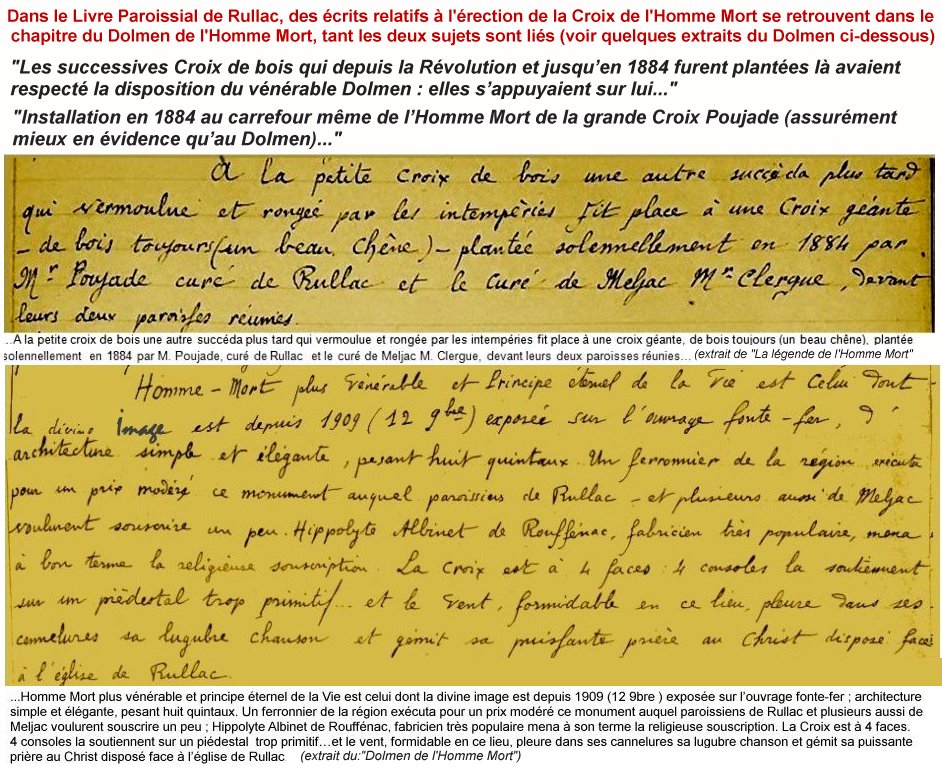 Dans le Livre Paroissial de Rullac, des écrits relatifs à l'érection de la Croix de l'Homme Mort se retrouvent dans le
chapitre du Dolmen de l'Homme Mort, tant les deux sujets sont liés (voir quelques extraits du Dolmen ci-dessous)
"Les successives Croix de bois qui depuis la Révolution et jusqu’en 1884 furent plantées là avaient
respecté la disposition du vénérable Dolmen : elles s’appuyaient sur lui..."
"Installation en 1884 au carrefour même de l’Homme Mort de la grande Croix Poujade (assurément
mieux en évidence qu’au Dolmen)..."
A la petite croix de bois une autre succèda plus tard
qui vermoulue et rongée par les intempèries fit place à une Croix géante
- de bois toujours (un beau chêne) - plantée solennellement en 1884 par
Mr Poujade curé de Rullac et le Curé de Meljac Mr Clergue, devant
leurs deux paroisses réunies.
...A la petite croix de bois une autre succéda plus tard qui vermoulue et rongée par les intempéries fit place à une croix géante, de bois toujours (un beau chêne), plantée
solennellement en 1884 par M. Poujade, curé de Rullac et le curé de Meljac M. Clergue, devant leurs deux paroisses réunies... (extrait de "La légende de l'Homme Mort"
Homme - Mort plus vénérable et Principe éternel de la Vie est Celui dont
la divine Image est depuis 1909 (12 9bre) exposée sur l'ouvrage fonte - fer, d'
architecture simple et élégante, pesant huit quintaux. Un ferronnier de la région exécuta
pour un prix modéré ce monument auquel paroissiens de Rullac - et plusieurs aussi de Meljac
voulurent souscrire un peu. Hippolyte Albinet de Rouffénac, fabricien très populaire, mena
à bon terme la religieuse souscription. La Croix est à 4 faces : 4 consoles la soutiennent
sur un piédestal trop primitif... et le vent, formidable en ce lieu, pleure dans ses
cannelures sa lugubre chanson et gémit sa puissante prière au Christ disposé face
à l'église de Rullac.
...Homme Mort plus vénérable et principe éternel de la Vie est celui dont la divine image est depuis 1909 (12 9bre ) exposée sur l’ouvrage fonte-fer ; architecture
simple et élégante, pesant huit quintaux. Un ferronnier de la région exécuta pour un prix modéré ce monument auquel paroissiens de Rullac et plusieurs aussi de
Meljac voulurent souscrire un peu ; Hippolyte Albinet de Rouffénac, fabricien très populaire mena à son terme la religieuse souscription. La Croix est à 4 faces.
4 consoles la soutiennent sur un piédestal trop primitif…et le vent, formidable en ce lieu, pleure dans ses cannelures sa lugubre chanson et gémit sa puissante
prière au Christ disposé face à l’église de Rullac (extrait du:"Dolmen de l'Homme Mort")